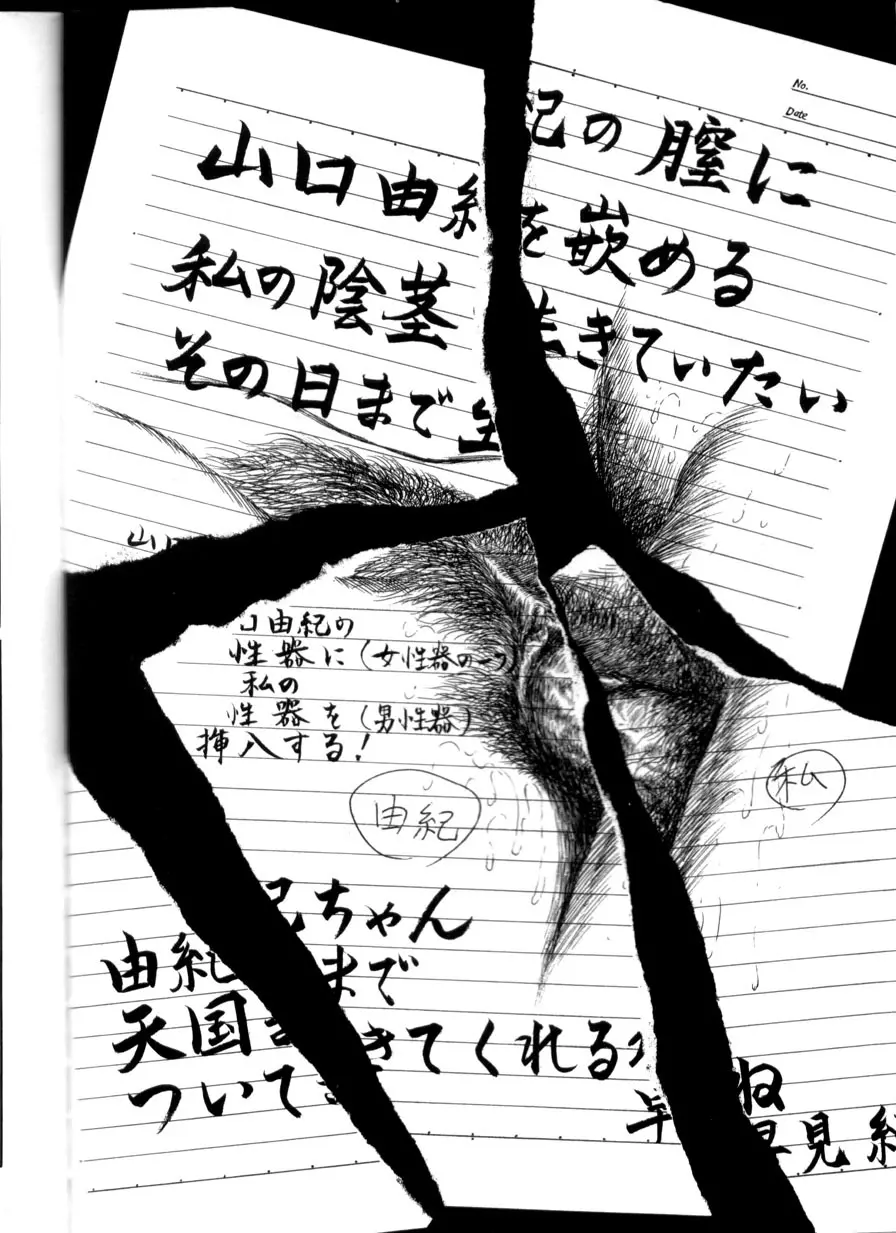 No.
Date
山口由紀の膣に
私の陰茎を嵌める
その日まで生きていたい
山口
口由紀の
性器に(女性器の一つ)
私の
性器を(男性器)
挿入する!
由紀
私
紀ちゃん
由紀 まで
天国 きてくれるか
ついて ね
早見 紀